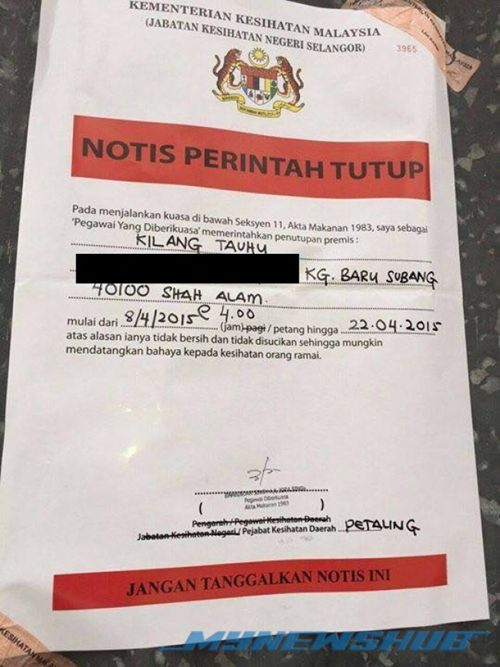 KEMENTERIAN KESIHATAN MALAYSIA
(JABATAN KESIHATAN NEGERI SELANGOR)
3965
NOTIS PERINTAH TUTUP
Pada menjalankan kuasa di bawah Seksyen 11, Akta Makanan 1983, saya sebagai
'Pegawai Yang Diberikuasa' memerintahkan penutupan premis :
KILANG TAUHU
KG. BARU SUBANG
40100 SHAH ALAM.
mulai dari 8/4/2015 @ 4.00 (jam) pagi / petang hingga 22.04.2015
atas alasan ianya tidak bersih dan tidak disucikan sehingga mungkin
mendatangkan bahaya kepada kesihatan orang ramai.
Pegawai Diberikuasa
Akta Makanan 1983
( )
Pengarah / Pegawai Kesihatan Daerah
Jabatan Kesihatan Negeri / Pejabat Kesihatan Daerah PETALING
JANGAN TANGGALKAN NOTIS INI
MYNEWSHUB